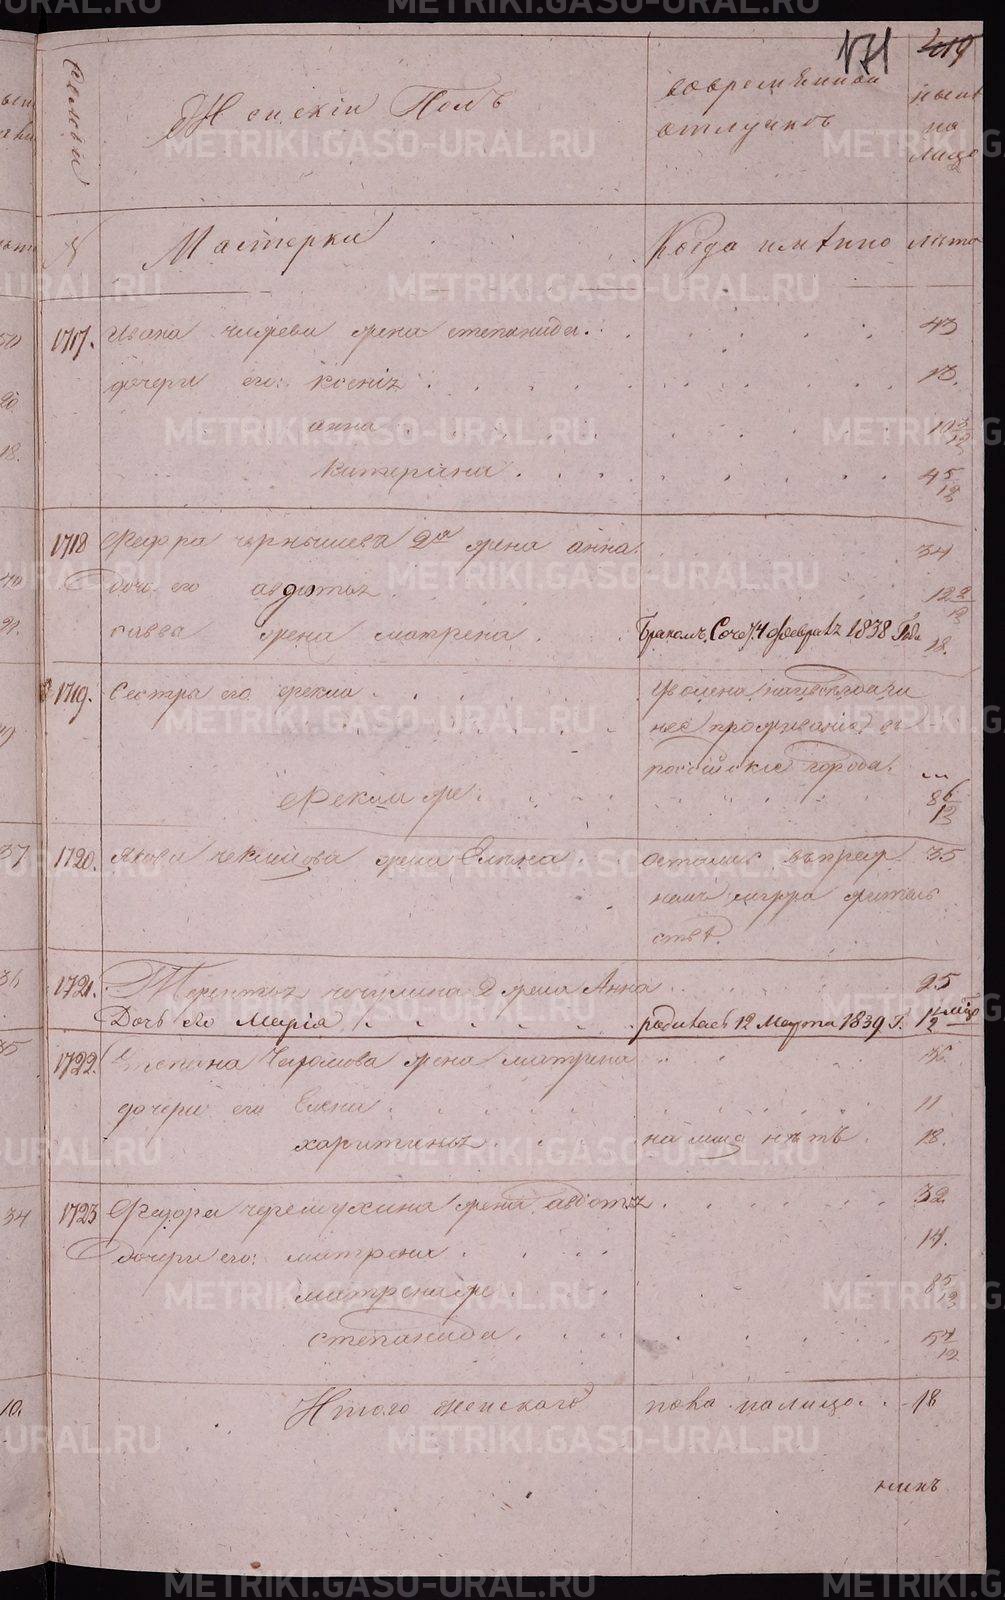 171
419
Семьи
Женскiй Полъ
вовременной
отлучкѣ
ныне
на
лицо
№
Мастерки
Когда именно
лѣта
1717.
Ивана жена степанида.
43
дочери его: ксенiя
18.
анна
10 3/12
катерина
4 5/12
1718
Федора чернышева 2я жена анна.
34
дочь его авдотья
12 2/12
савва жена матрена
Бракомъ Соче. 14 февраля 1838 Года
18.
1719.
Сестры его фекла
Уволена
нее проживанiя въ
россiйскiе города.
Фекла же.
8 6/12
1720.
Якова чеклецова жена Елена
осталась въпреж
35
немъ жительс
ствѣ.
1721.
Терентья чечулина 2 жена Анна
25
Дочь его Марiа
родилась 12 Марта 1839 Г.
1 1/2
1722.
Степана жена матрена
36.
дочери его Елена
11
харитинья
на лицо нѣтъ.
18.
1723
Федора черемухина жена авдотья
32.
дочери его: матрена
14.
матрена же
8 5/12
степанида
5 7/12
Итого женскаго
пола налицо
18